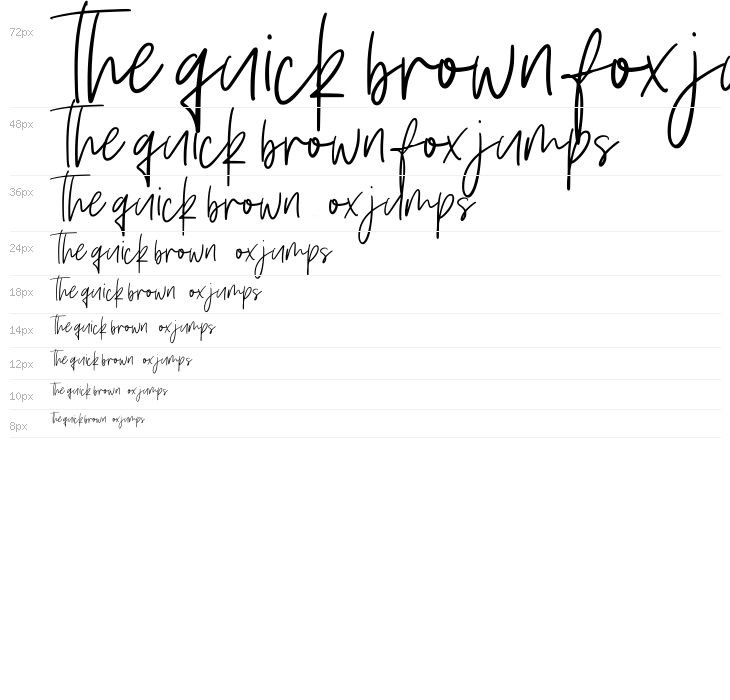 72px The quick brown fox ju
48px The quick brown fox jumps
36px The quick brown ox jumps
24px The quick brown ox jumps
18px The quick brown ox jumps
14px The quick brown ox jumps
12px The quick brown ox jumps
10px The quick brown ox jumps
8px The quick brown ox jumps